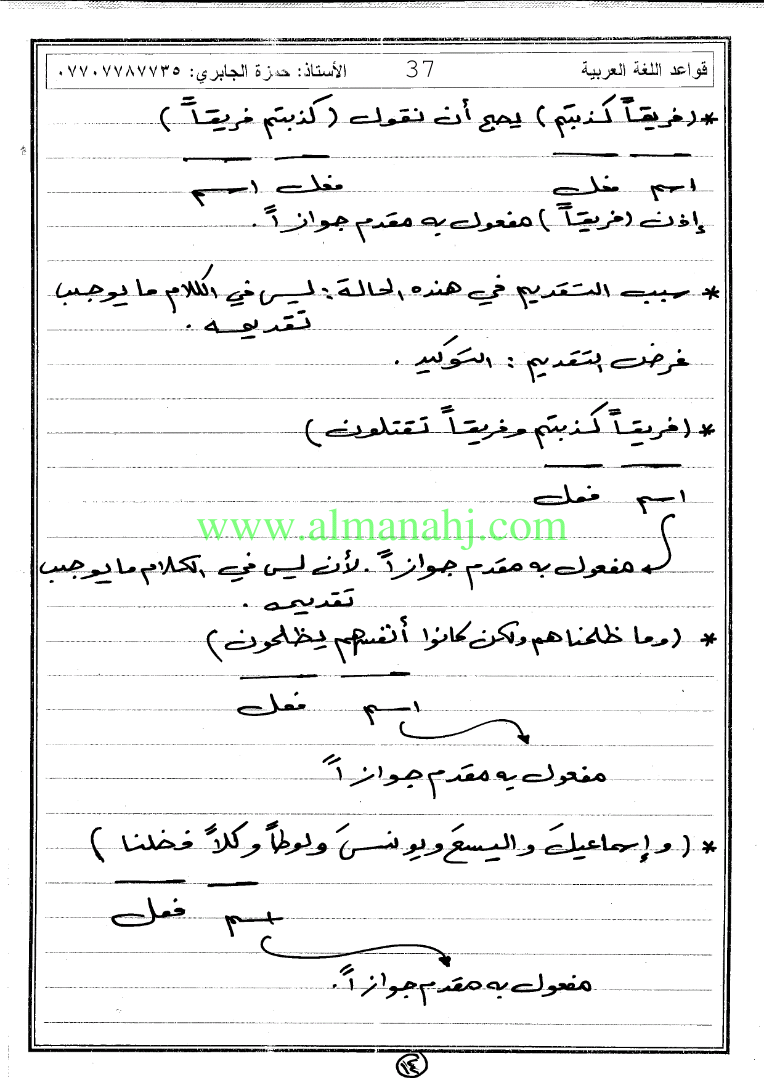 قواعد اللغة العربية 37 الأستاذ: حمزة الجابري: ٠٧٧٠٧٧٨٧٧٣٥
* (فريقاً كذبتم) يصح أن نقول (كذبتم فريقاً)
اسم فعل فعل اسم
إذن (فريقاً) مفعول به مقدم جوازاً.
* سبب التقديم في هذه الحالة: ليس في الكلام ما يوجب
تقديمه.
غرض التقديم: التوكيد.
* (فريقاً كذبتم وفريقاً تقتلون)
اسم فعل
www.almanahj.com
مفعول به مقدم جوازاً. لأن ليس في الكلام ما يوجب
تقديمه.
* (وما ظلمناهم ولكن كانوا أنفسهم يظلمون)
اسم فعل
مفعول به مقدم جوازاً
* (وإسماعيلَ واليسعَ ويونسَ ولوطاً وكلاً فضلنا)
اسم فعل
مفعول به مقدم جوازاً.
١٤